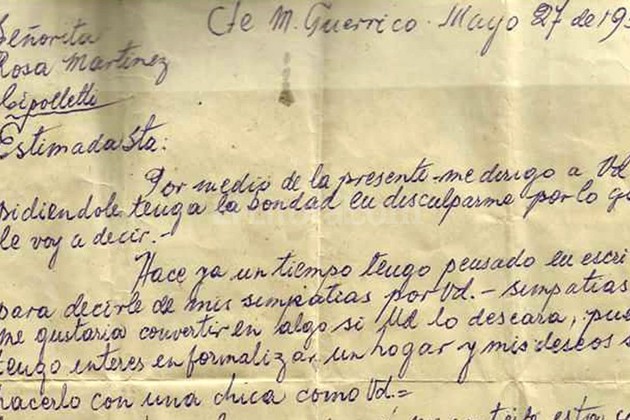 Cte M. Guerrico. Mayo 27 de 193
Señorita
Rosa Martinez
Cipolletti
Estimada Sta:
Por medio de la presente me dirigo a Vd
pidiendole tenga la bondad en disculparme por lo q
le voy a decir.-
Hace ya un tiempo tengo pensado en escri
para decirle de mis simpatias por Vd.- simpatias
me gustaria convertir en algo si Ud lo deseara, pue
tengo interes en formalizar un hogar y mis deseos s
hacerlo con una chica como Vd.=